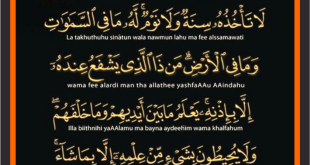 لَا تَأْخُذُهُ سِنَةٌ وَلَا نَوْمٌ لَهُ مَا فِي السَّمَاوَاتِ
La takhuthuhu sinatun wala nawmun lahu ma fee alssamawati
وَمَا فِي الْأَرْضِ مَن ذَا الَّذِي يَشْفَعُ عِندَهُ
wama fee alardi man tha allathee yashfaAAu AAindahu
إِلَّا بِإِذْنِهِ يَعْلَمُ مَا بَيْنَ أَيْدِيهِمْ وَمَا خَلْفَهُمْ
illa biithnihi yaAAlamu ma bayna aydeehim wama khalfahum
وَلَا يُحِيطُونَ بِشَيْءٍ مِّنْ عِلْمِهِ إِلَّا بِمَا شَاءَ